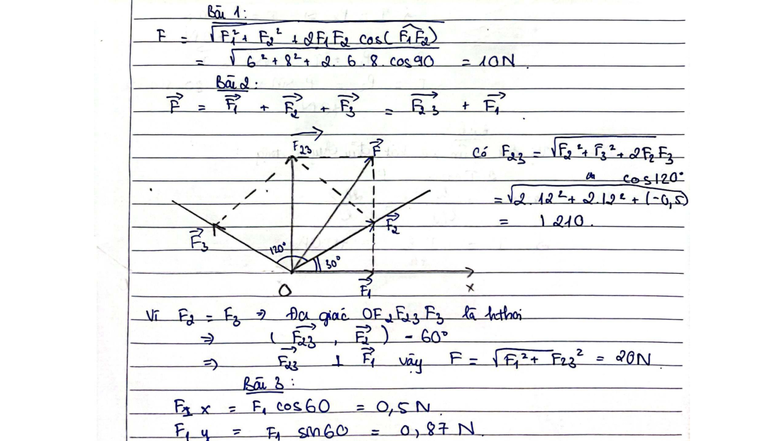 Bài 1:
F = √F₁² + F₂² + 2F₁F₂ cos(F₁F₂)
= √6² + 8² + 2. 6. 8. cos90 = 10N
Bài 2:
F⃗ = F₁⃗ + F₂⃗ + F₃⃗ = F₂₃⃗ + F₁⃗
F₂₃⃗ F⃗
có F₂₃ = √F₂² + F₃² + 2F₂F₃
cos120°
= √2.12² + 2.12² + (-0,5)
=
F₃⃗ F₂⃗
120° 30°
O F₁⃗ x
Vì F₂ = F₃ => Đa giác OF₂F₂₃F₃ là hthoi
=> (F₂₃⃗, F₂⃗) = 60°
=> F₂₃⃗ ⊥ F₁⃗ vậy F = √F₁² + F₂₃² = 20N
Bài 3:
x = F₁ cos60 = 0,5N
F₁y = F₁ sin60 = 0,87N